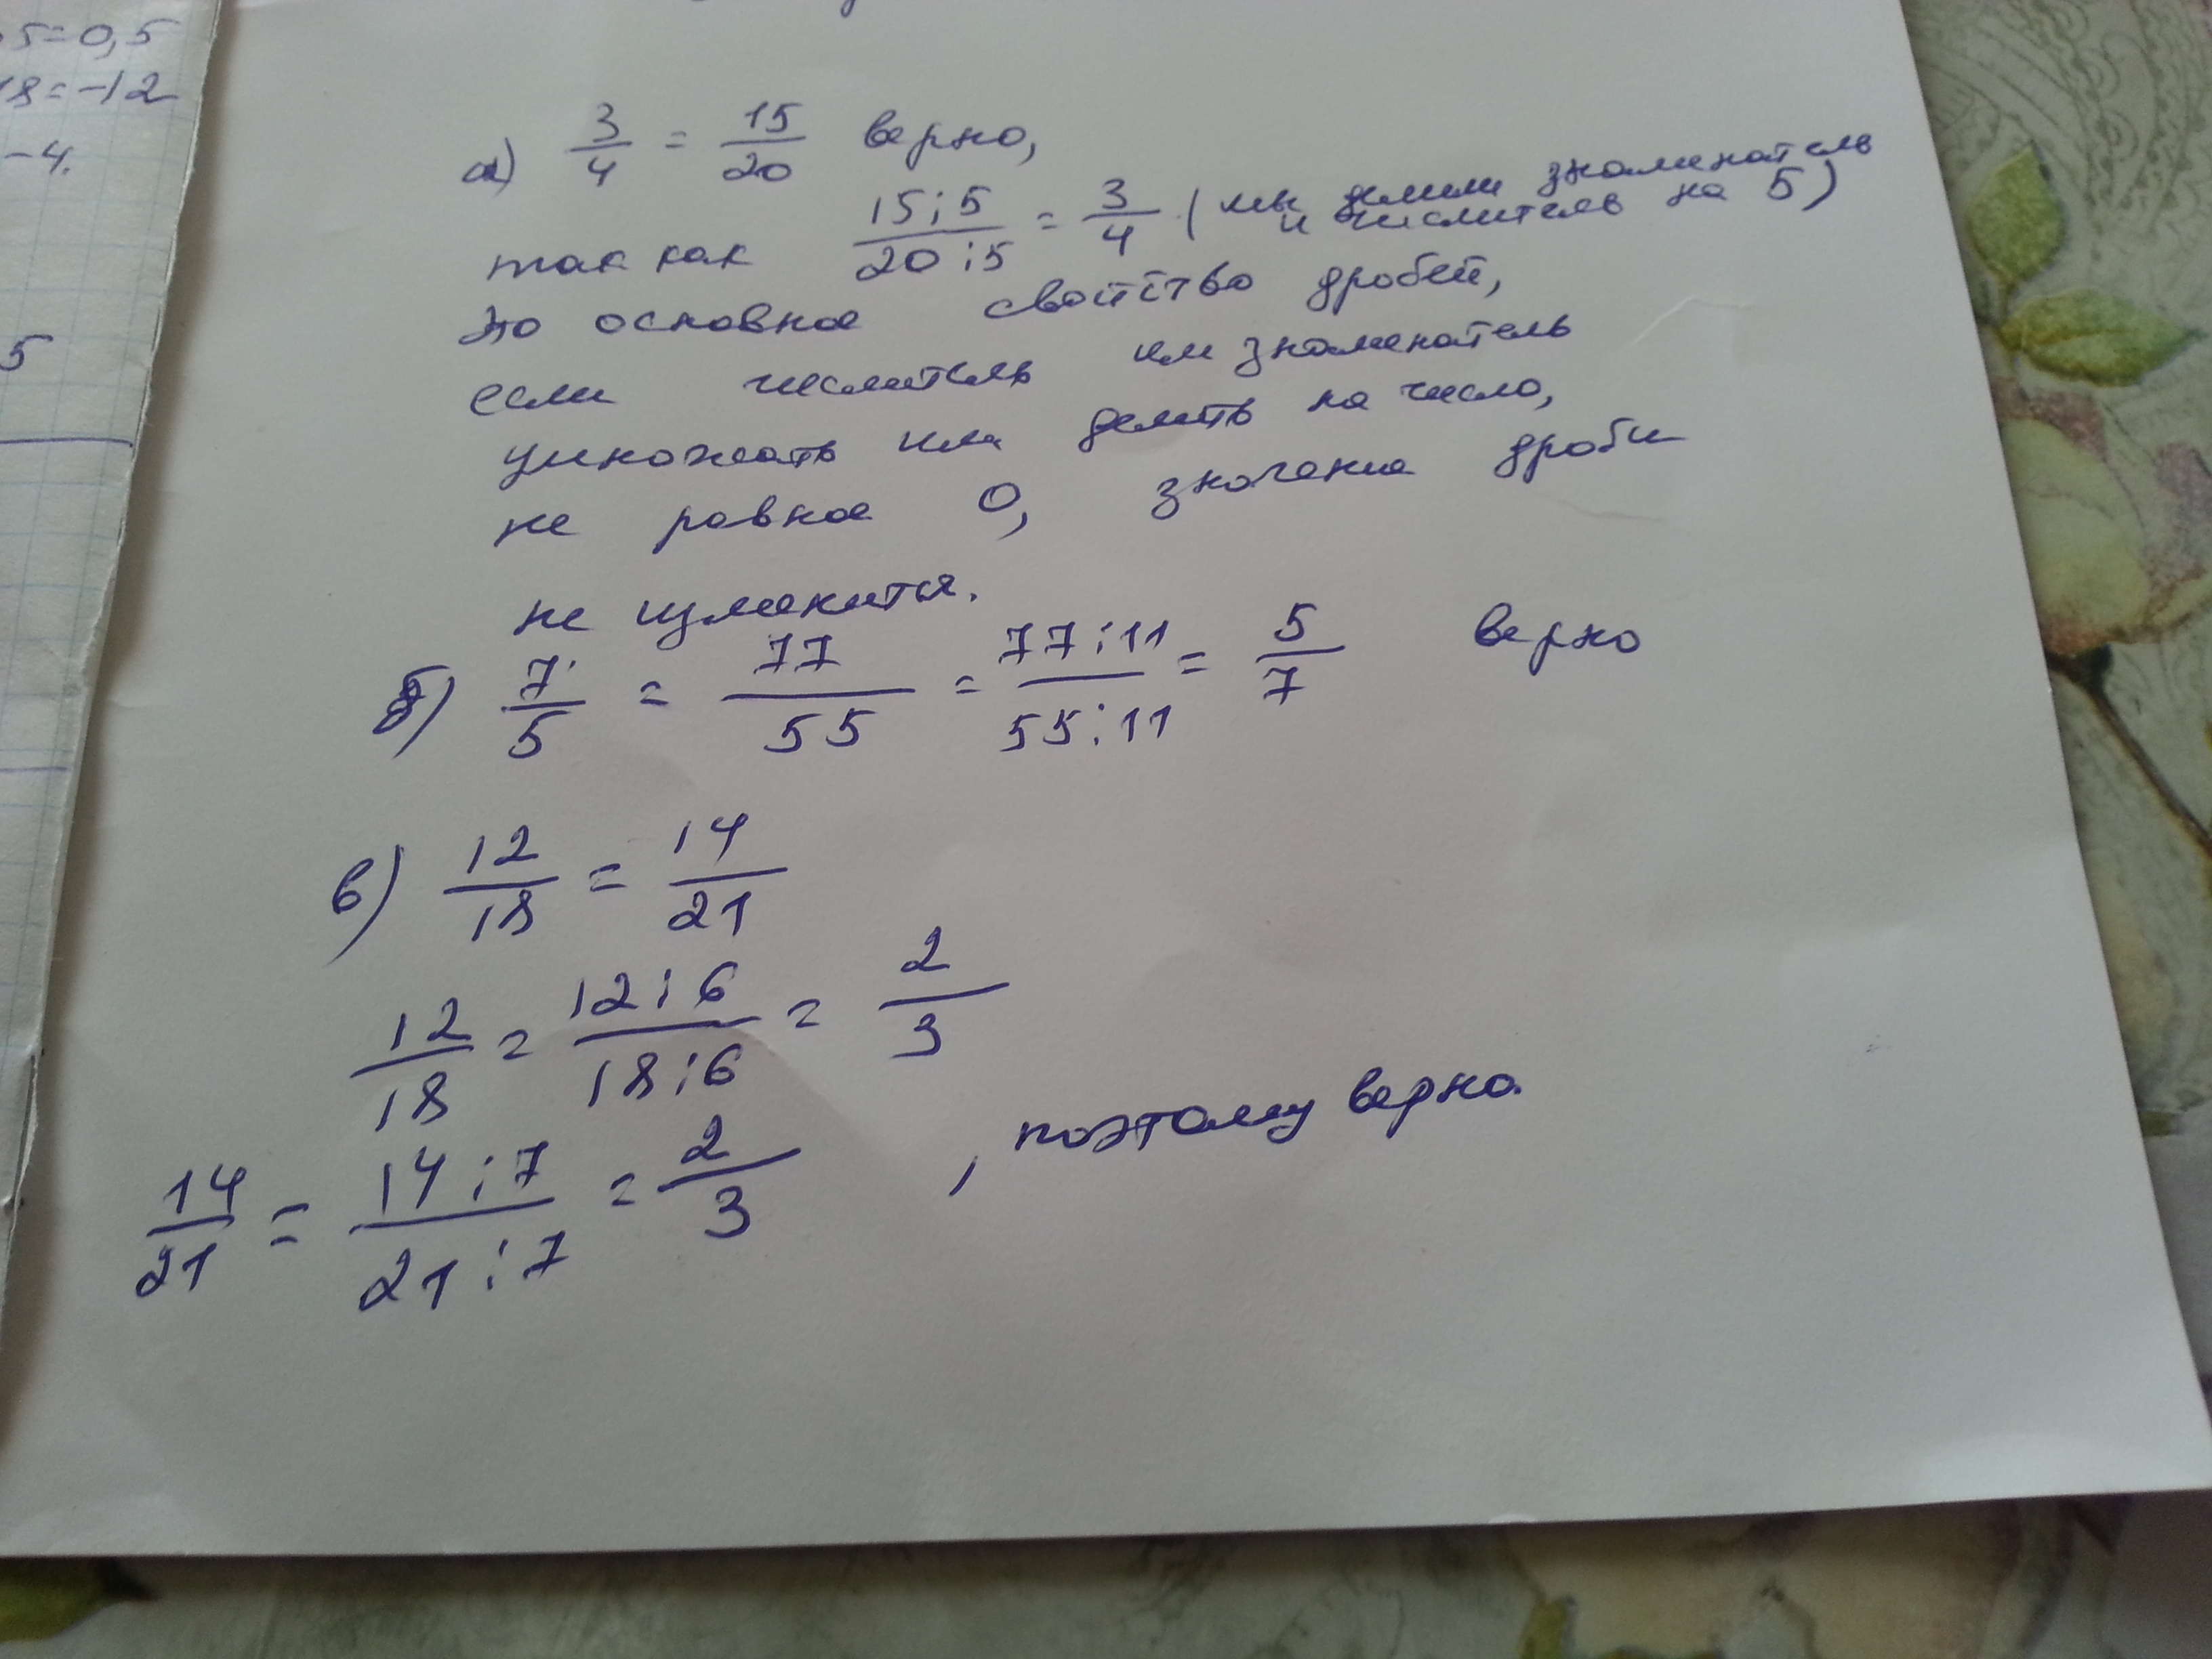 5=0,5
18=-12
-4.
5
а) 3/4 = 15/20 верно,
так как 15:5/20:5 = 3/4 (мы делили знаменатель
и числитель на 5)
это основное свойство дробей,
если числитель или знаменатель
умножать или делить на число,
не равное 0, значение дроби
не изменится.
б) 7/5 = 77/55 = 77:11/55:11 = 5/7 верно
в) 12/18 = 14/21
12/18 = 12:6/18:6 = 2/3
14/21 = 14:7/21:7 = 2/3 , поэтому верно.